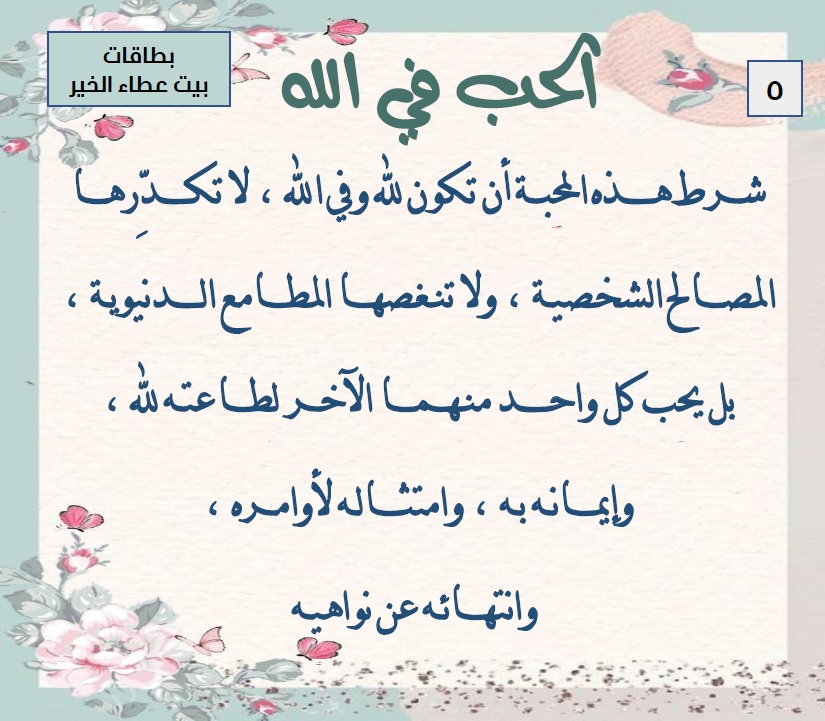 بطاقات
بيت عطاء الخير
الحب في الله
٥
شرط هذه المحبة أن تكون لله وفي الله ، لا تكدّرِها
المصالح الشخصية ، ولا تنغصها المطامع الدنيوية ،
بل يحب كل واحد منهما الآخر لطاعته لله ،
وإيمانه به ، وامتثاله لأوامره ،
وانتهائه عن نواهيه